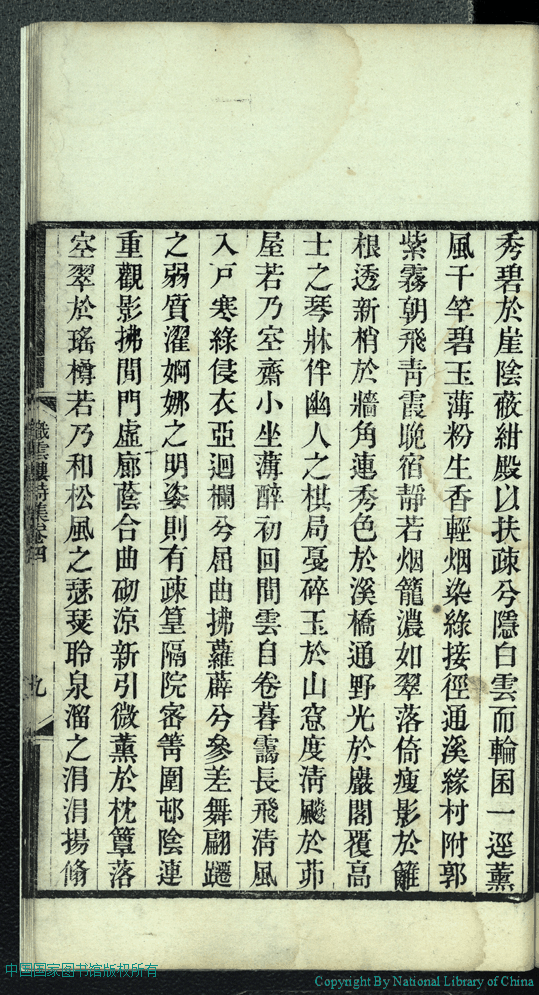 秀碧於崖陰蔽紺殿以扶疎兮隱白雲而輪囷一逕薰
風千竿碧玉薄粉生香輕烟染綠接徑通溪緣村附郭
紫霧朝飛靑霞晚宿靜若烟籠濃如翠落倚瘦影於籬
根透新梢於牆角連秀色於溪橋通野光於巖閣覆高
士之琴牀伴幽人之棋局戞碎玉於山窻度淸飈於茆
屋若乃空齋小坐薄醉初回間雲自卷暮靄長飛淸風
入戸寒綠侵衣亞迴欄兮屈曲拂蘿薜兮參差舞翩躚
之弱質濯婀娜之明姿則有疎篁隔院密箐圍邨陰連
重觀影拂閒門虛廊蔭合曲砌凉新引微薰於枕簟落
空翠於瑤樽若乃和松風之瑟瑟聆泉溜之涓涓揚翛
織雲樓詩集卷四
九
中国国家图书馆版权所有
Copyright By National Library of China